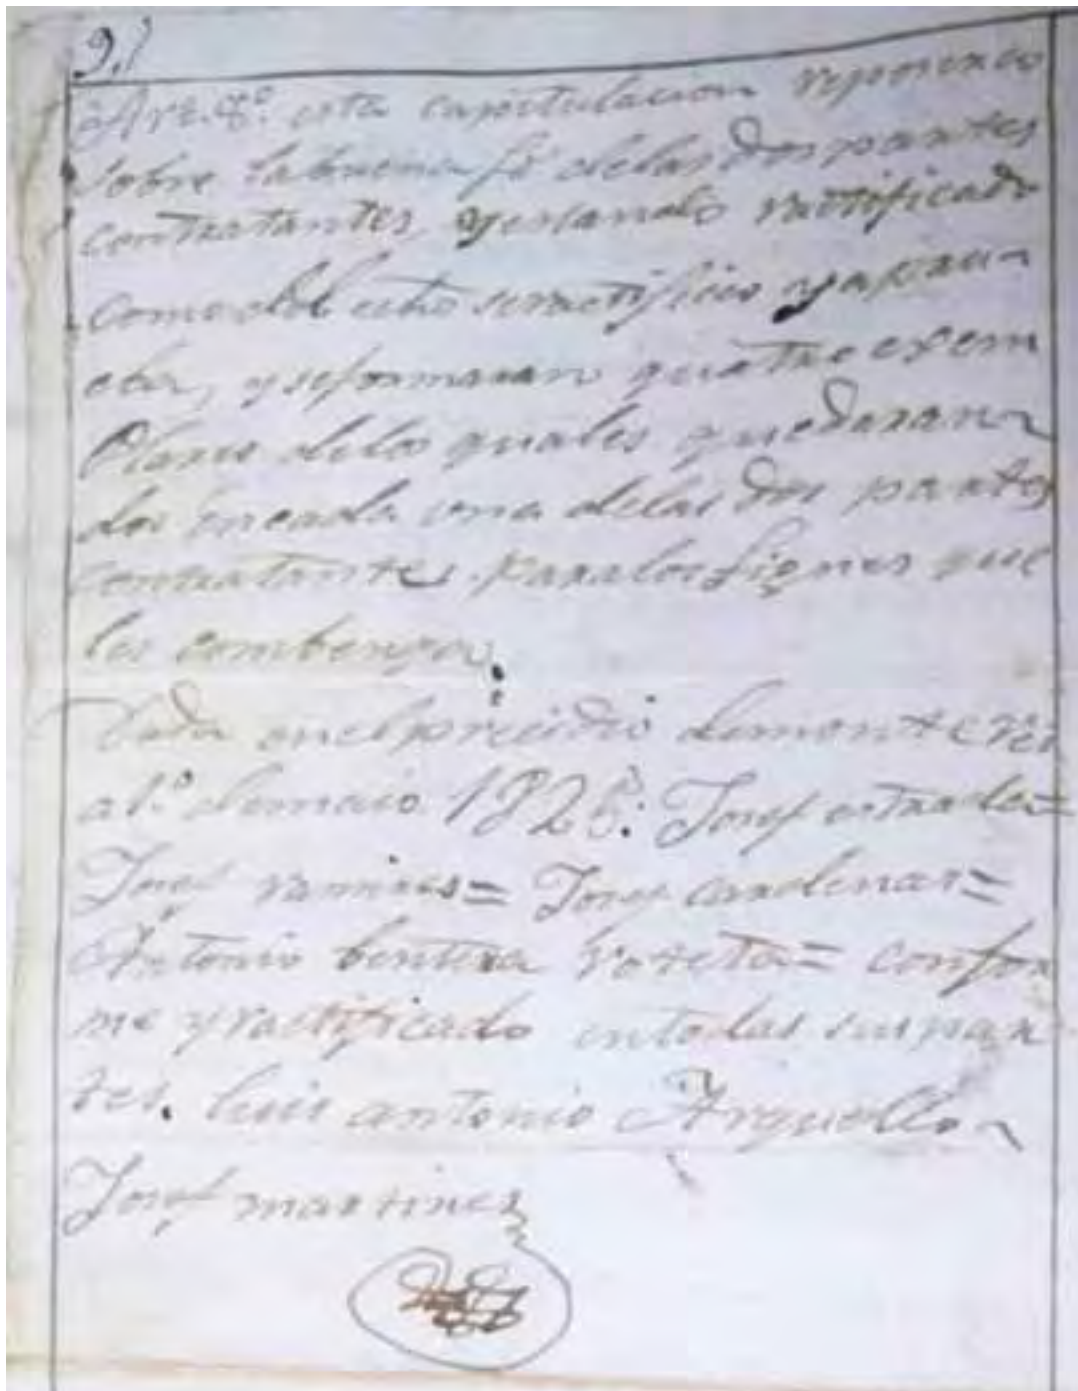 9.
Art. 8º. esta capitulacion reposando
sobre la buena fé delas dos partes
contratantes, yestando rattificada
como debe
eba, y seformaran quatro exem
Plares delos quales quedaran
dos encada una delas dos partes
contratantes. paralos fignes que
les combenga.
Dada enelprecidio demonterei
a 1.º demaio 182 Josef estrada=
Josef ramires= Josef cardenas=
Antonio bentura = confor
me y ratificado entodas sus par
tes. luis antonio Arguello
Josef martines